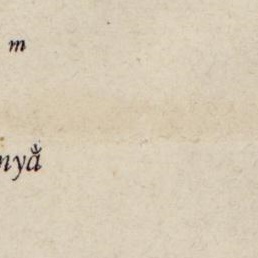 m
nyǎ